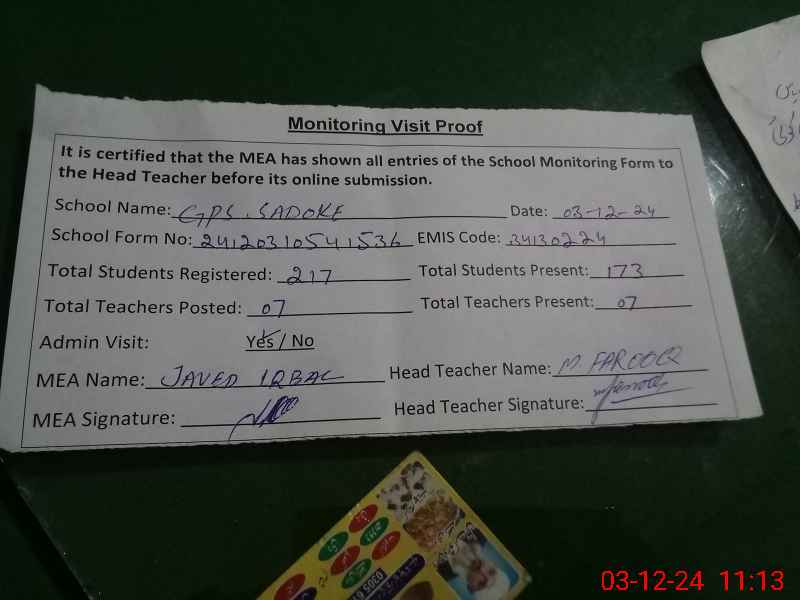 Monitoring Visit Proof
It is certified that the MEA has shown all entries of the School Monitoring Form to
the Head Teacher before its online submission.
School Name: GPS. SADOKE Date: 03-12-24
School Form No: 24120310541536 EMIS Code: 34130224
Total Students Registered: 217 Total Students Present: 173
Total Teachers Posted: 07 Total Teachers Present: 07
Admin Visit: Yes / No
MEA Name: JAVED IQBAL Head Teacher Name: M. FAROOQ
MEA Signature: Head Teacher Signature:
03-12-24 11:13